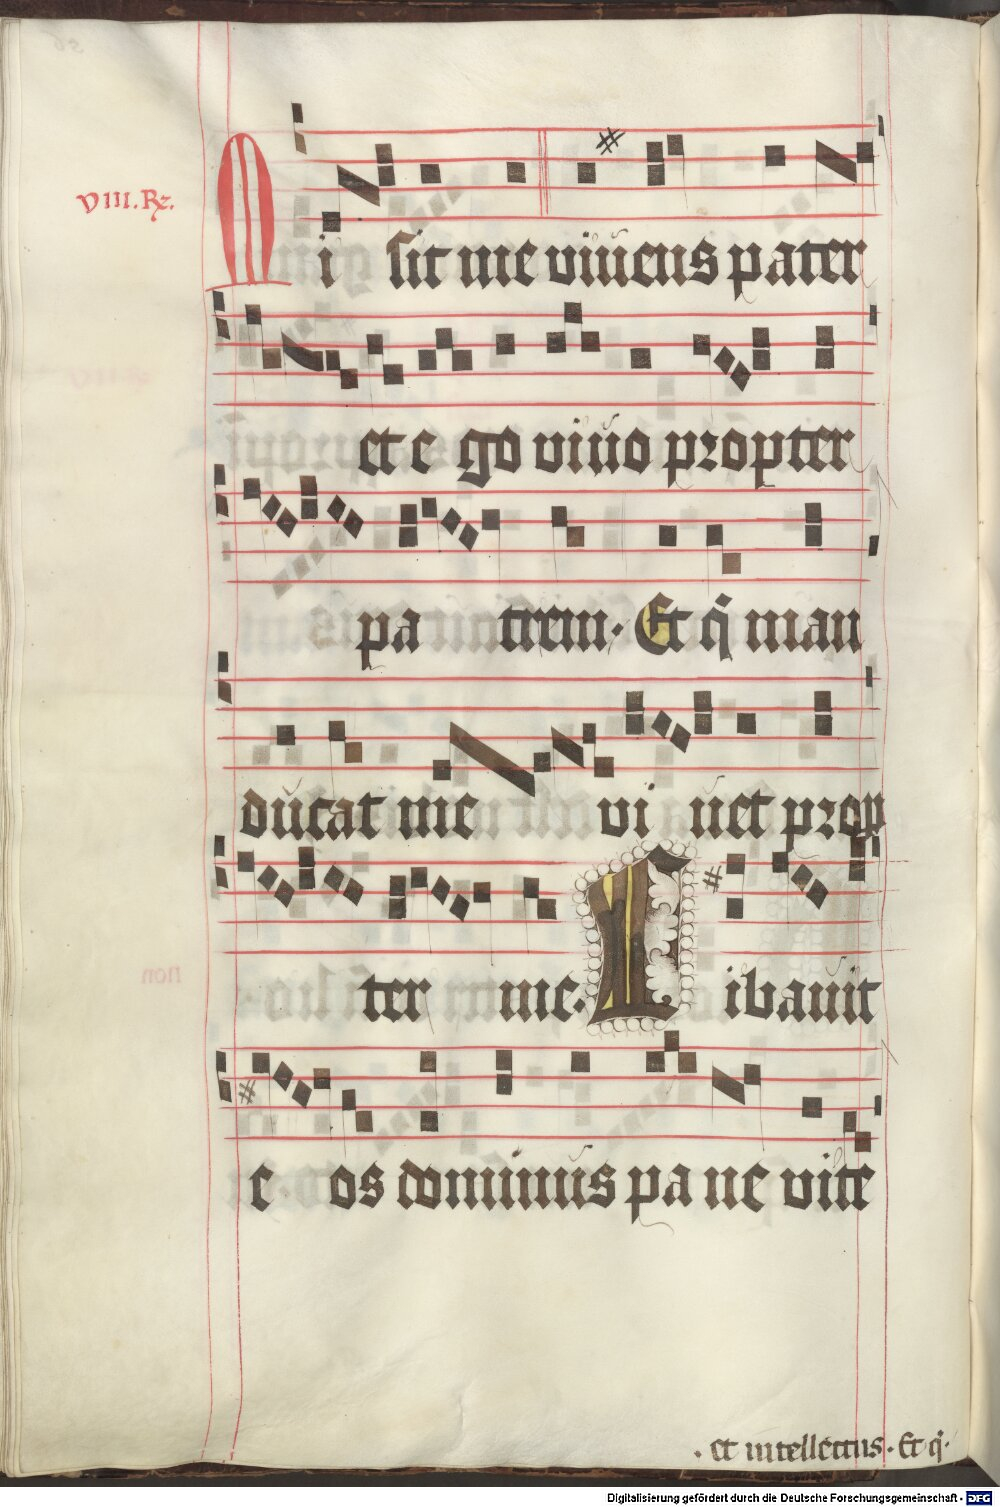 VIII. R.
Misit me viuens pater
et ego viuo propter
patrem. Et q̄ man
ducat me viuet prop
ter me. Libauit
eos dominus pane vite
. et intellectus. Et q̄.
Digitalisierung gefördert durch die Deutsche Forschungsgemeinschaft - DFG